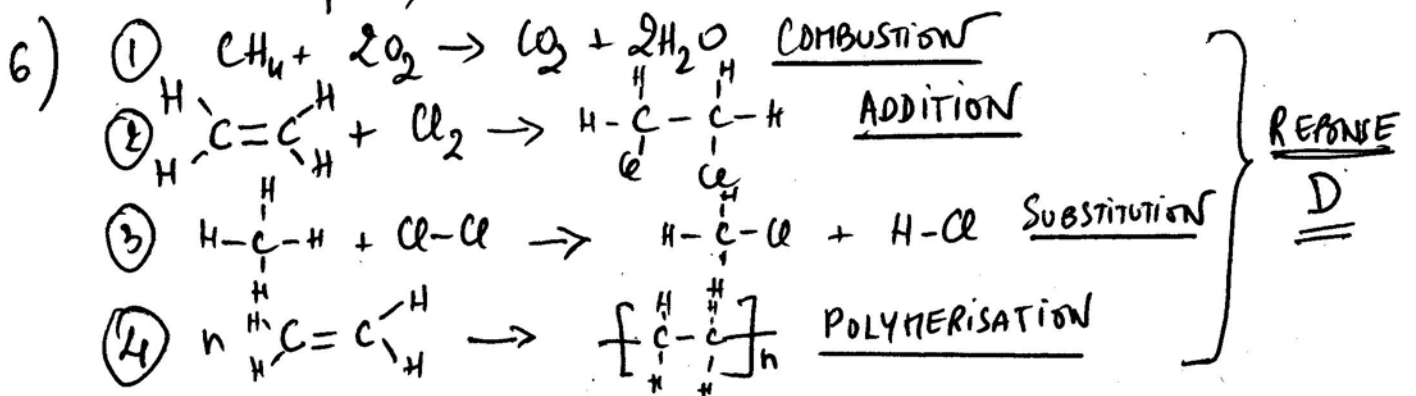 6) ① CH4 + 2O2 → CO2 + 2H2O COMBUSTION
② H H C=C H H + Cl2 → H-C-C-H H H Cl Cl ADDITION
③ H-C-H H H + Cl-Cl → H-C-Cl H H + H-Cl SUBSTITUTION
④ n H H C=C H H → [C-C]n H H H H POLYMERISATION
REPONSE
D